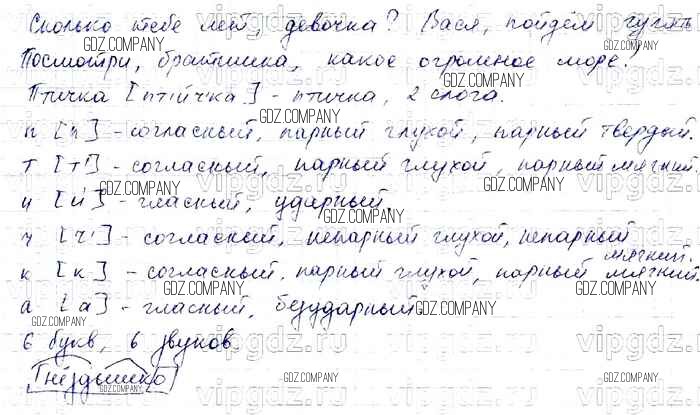 Сколько тебе лет, девочка? Вася, пойдём гулять
Посмотри, братишка, какое огромное море!
Птичка [птійчка] - птичка, 2 слога.
п [п] - согласный, парный глухой, парный твердый.
т [т'] - согласный, парный глухой, парный мягкий.
и [и́] - гласный, ударный
ч [ч'] - согласный, непарный глухой, непарный
мягкий.
к [к] - согласный, парный глухой, парный мягкий.
а [а] - гласный, безударный
6 букв, 6 звуков
Гнёздышко